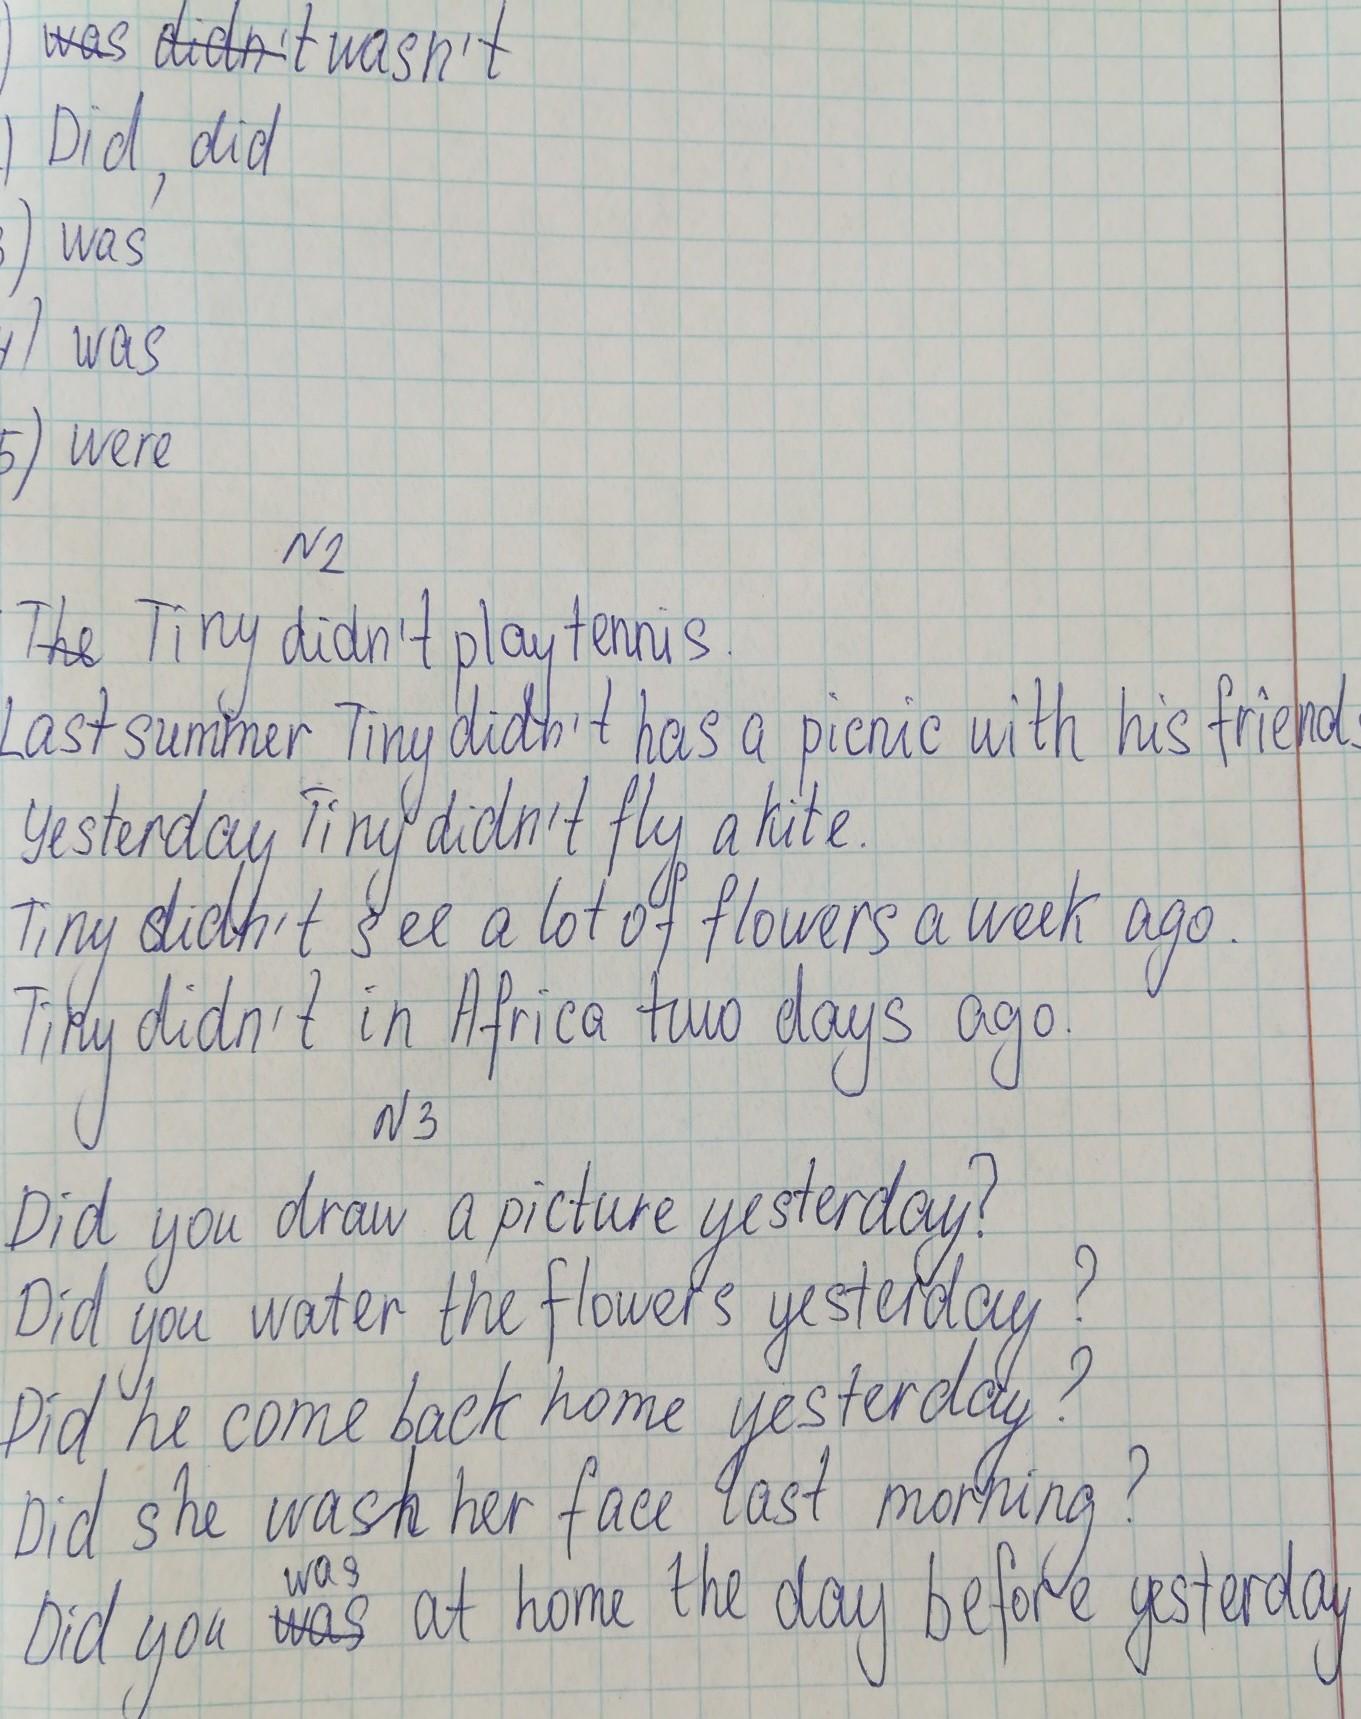 ) was didn't wasn't
) Did, did
3) was
4) was
5) were
N2
The Tiny didn't play tennis.
Last summer Tiny didn't has a picnic with his friends
Yesterday Tiny didn't fly a kite.
Tiny didn't see a lot of flowers a week ago.
Tiny didn't in Africa two days ago.
N3
Did you draw a picture yesterday?
Did you water the flowers yesterday?
Did he come back home yesterday?
Did she wash her face last morning?
was
Did you was at home the day before yesterday